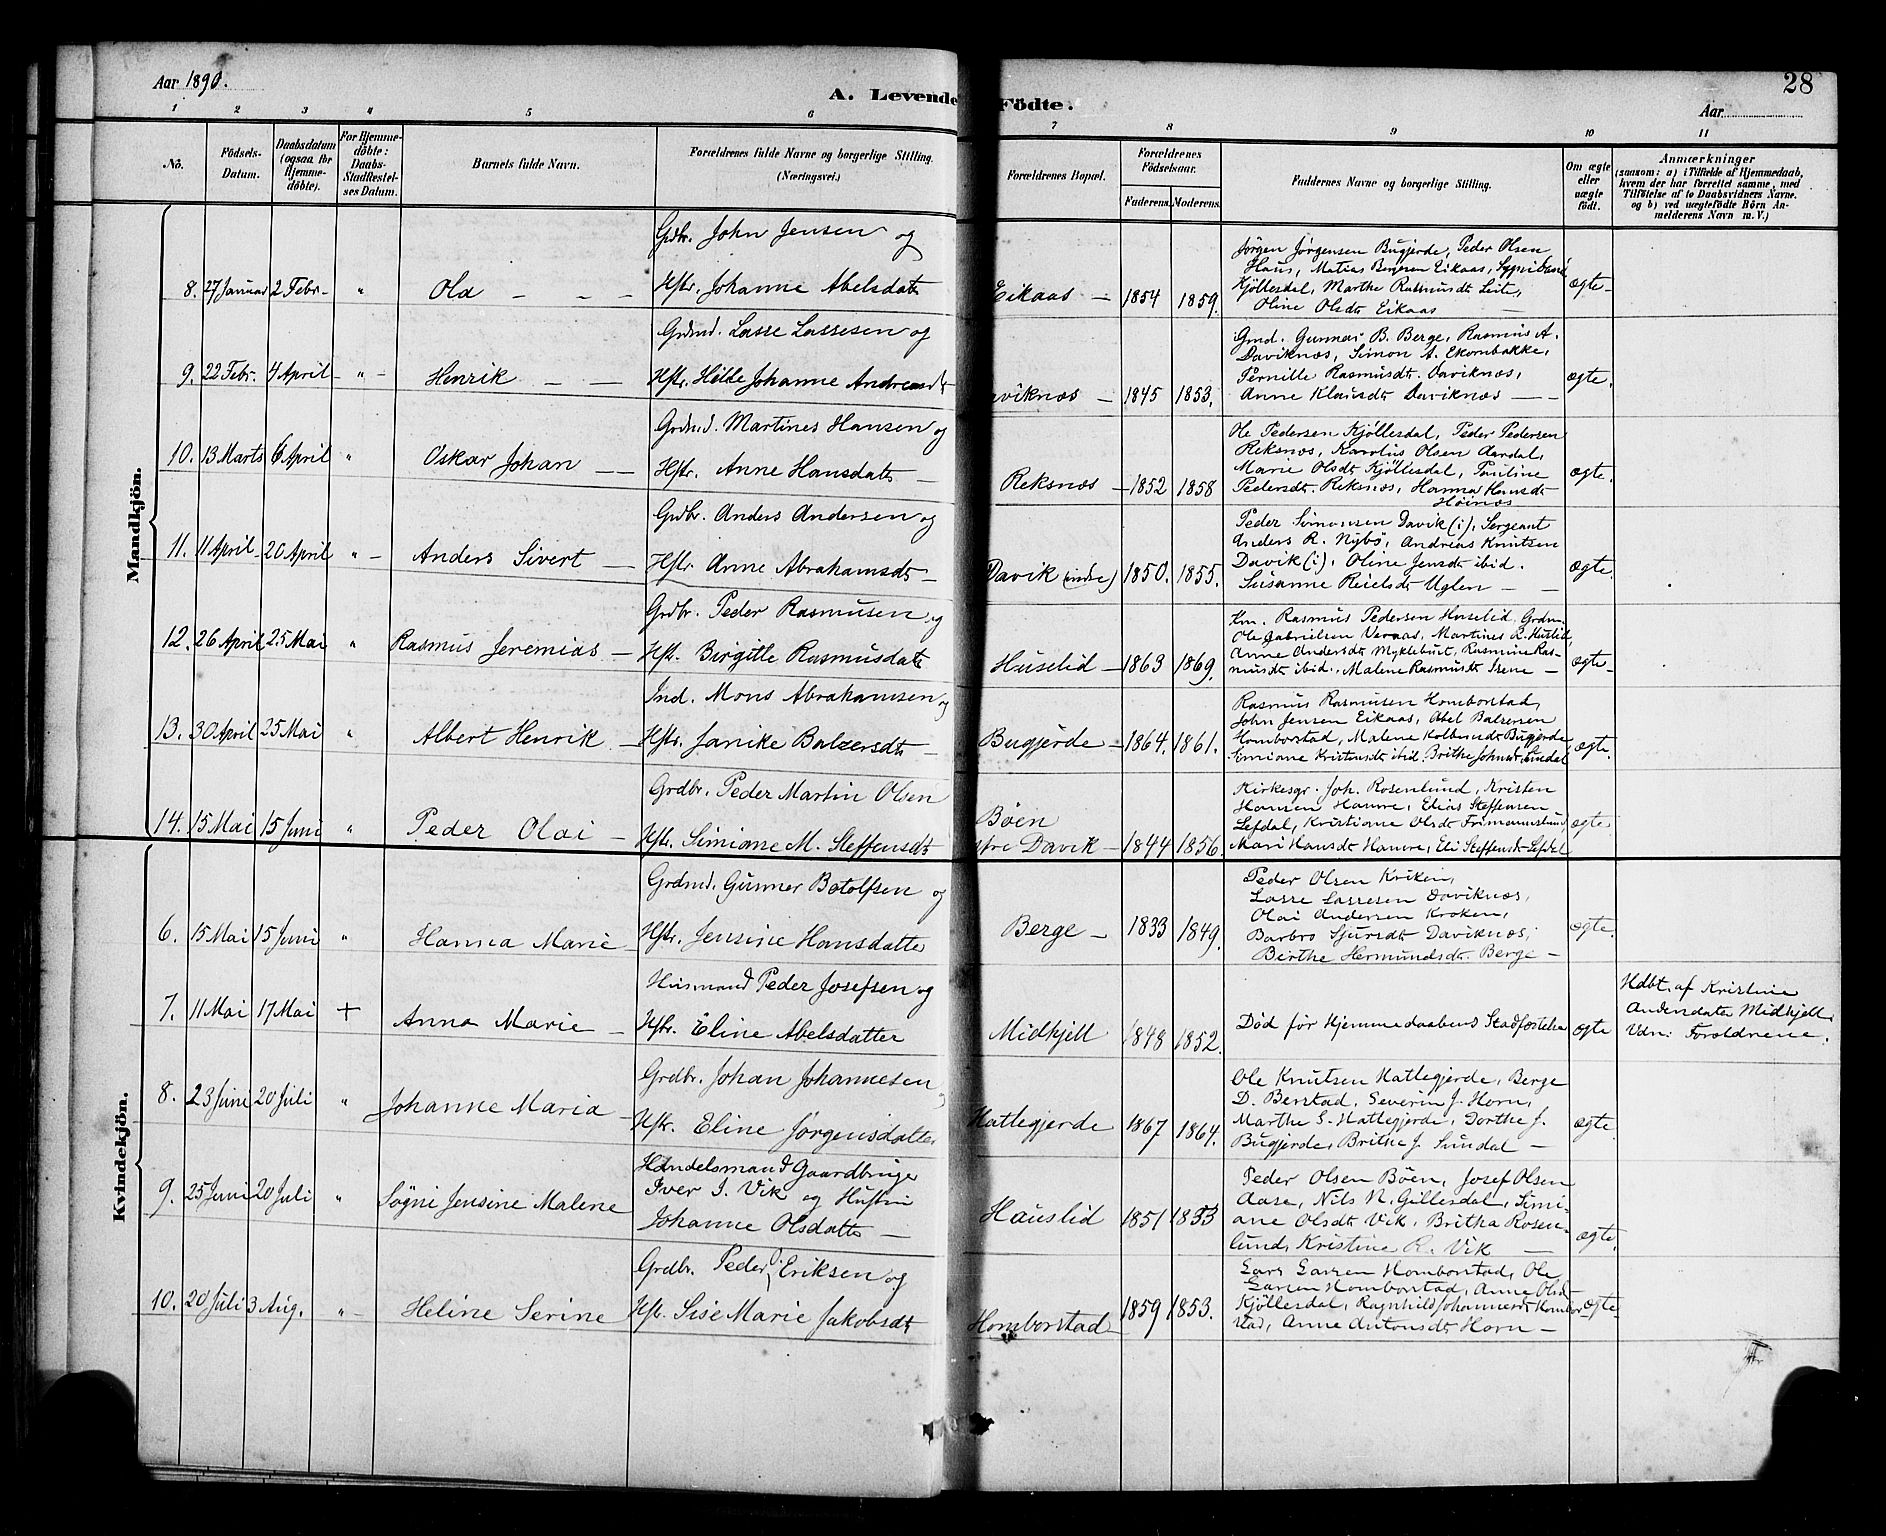 Aar 1890.
28
A. Levende Födte.
Aar
1 2 3 4 5 6 7 8 9 10 11
No.
Födsels-Datum.
Daabsdatum (ogsaa for Hjemmedöbte).
For Hjemmedöbte: Daabs-Stadfæstelses Datum.
Barnets fulde Navn.
Forældrenes fulde Navne og borgerlige Stilling. (Næringsvei.)
Forældrenes Bopæl.
Forældrenes Födselsaar.
Faderens. Moderens.
Faddernes Navne og borgerlige Stilling.
Om ægte eller uægte födt.
Anmærkninger
(saasom: a) i Tilfælde af Hjemmedaab, hvem der har forrettet samme, med Tilföielse af to Daabsvidners Navne. og b) ved uægtefödte Börn Anmelderens Navn m. V.)
Mandkjön.
8. 27 Januar 2 Febr. " Ola
Grdbr. John Jensen og
Hstr. Johanne Abelsdatt
Eikaas 1854 1859.
Jørgen Jørgensen Bugjerde, Peder Olsen
Haus, Matias Eikaas,
Kjöllesdal, Marthe Rasmusdt. Leite,
Oline Olsdt. Eikaas
ægte
9. 22 Febr. 4 April " Henrik
Grdmd. Lasse Lassesen og
Hstr. Johanne
aviknæs 1845 1853.
Gmd. Gunnar B. Berge, Rasmus A.
Daviknæs, Simon A. Ekornbakke,
Pernille Rasmusdt. Daviknæs,
Anne Klausdt Daviknæs
ægte.
10. 13 Marts 6 April " Oskar Johan
Grdmd. Martines Hansen og
Hstr. Anne Hansdatt
Reksnæs 1852 1858
Ole Pedersen Kjöllesdal, Peder Pedersen
Reksnæs, Karolus Olsen Aardal,
Marie Olsdt Kjöllesdal, Pauline
Pedersdt. Reksnæs, Hanna Hansdt
Höinæs
ægte.
11. 11 April 20 April " Anders Sivert
Grdbr. Anders Andersen og
Hstr Anne Abrahamsdt
Davik (indre) 1850. 1855.
Peder Simonsen Davik (i), Sergeant
Anders R. Nybö, Andreas Knutsen
Davik (i), Oline Jensdt ibid.
Susanne Reielsdt Uglen
ægte.
12. 26 April 25 Mai " Rasmus Jeremias
Grdbr. Peder Rasmusen og
Hst. Birgitte Rasmusdatt
Huselid 1863 1869.
Km. Rasmus Pedersen Huselid, Grdm.
Ole Gabrielsen Veraas, Martines R. Huslid,
Anne Andersdt Myklebust, Rasmine Ras-
musdt ibid., Malene Rasmusdt
ægte
13. 30 April 25 Mai " Albert Henrik
Ind. Mons Abrahamsen og
Hstr. Janike Balzersdt
Bugjerde 1864. 1861.
Rasmus Rasmusen Homborstad,
John Jensen Eikaas, Abel Balzersen
Homborstad, Malene Bugjerde
Simiane Kristensdt ibid. Brithe Johnsdt. Sindal
ægte.
14. 15 Mai 15 Juni " Peder Olai
Grdbr. Peder Martin Olsen
Hstr. Simiane M. Steffensdt
Böen
stre Davik 1844 1856.
Kirkesgr. Joh. Rosenlund, Kristen
Hansen Hamre, Elias Steffensen
Lefdal, Kristiane Olsdt Frimannslund,
Mari Hansdt Hamre, Eli Steffensdt Lefdal
ægte
Kvindekjön.
6. 15 Mai 15 Juni " Hanna Marie
Grdmd. Gunner Botolfsen og
Hstr. Jensine Hansdatter
Berge 1833 1849.
Peder Olsen
Lasse Lassesen Daviknæs,
Olai Andersen Kroken,
Barbro Sjursdt Daviknæs,
Birthe Hermundsdt. Berge
ægte.
7. 11 Mai 17 Mai + Anna Marie
Husmand Peder Josefsen og
Hstr. Eline Abelsdatter
Midkjell 1848 1852.
Död før Hjemmedaabens Stadfæstelse
ægte
Hdbt. af Kristine
Midkjell
Vdn: Forældrene.
8. 23 Juni 20 Juli " Johanne Maria
Grdbr. Johan Johannesen
Hstr. Eline Jørgensdatter
Hattegjerde 1867 1864.
Ole Knutsen Hattegjerde, Berge
D. Berstad, Severin J. Horn,
Marthe S. Hattegjerde, Dorthe J.
Bugjerde, Brithe J. Sundal
ægte.
9. 25 Juni 20 Juli " Søgni Jensine Malene
Handelsmand Gaardbruger
Iver I. Vik og Hustru
Johanne Olsdatt
Hauslid 1851 1853
Peder Olsen Böen, Josef Olsen
Aase, Nils N. Gillesdal, Simi-
ane Olsdt Vik, Britha Rosen-
lund, Kristine R. Vik
ægte.
10. 20 Juli 3 Aug. " Heline Serine
Grdbr. Peder Eriksen og
Hst. Sise Marie Jakobsdt
Homborstad 1859 1853.
Lars Larsen Homborstad, Ole
Larsen Homborstad, Anne Olsdt
Kjöllesdal, Ragnhild Johannesdt Hombor-
stad, Anne Antonsdt Horn
ægte